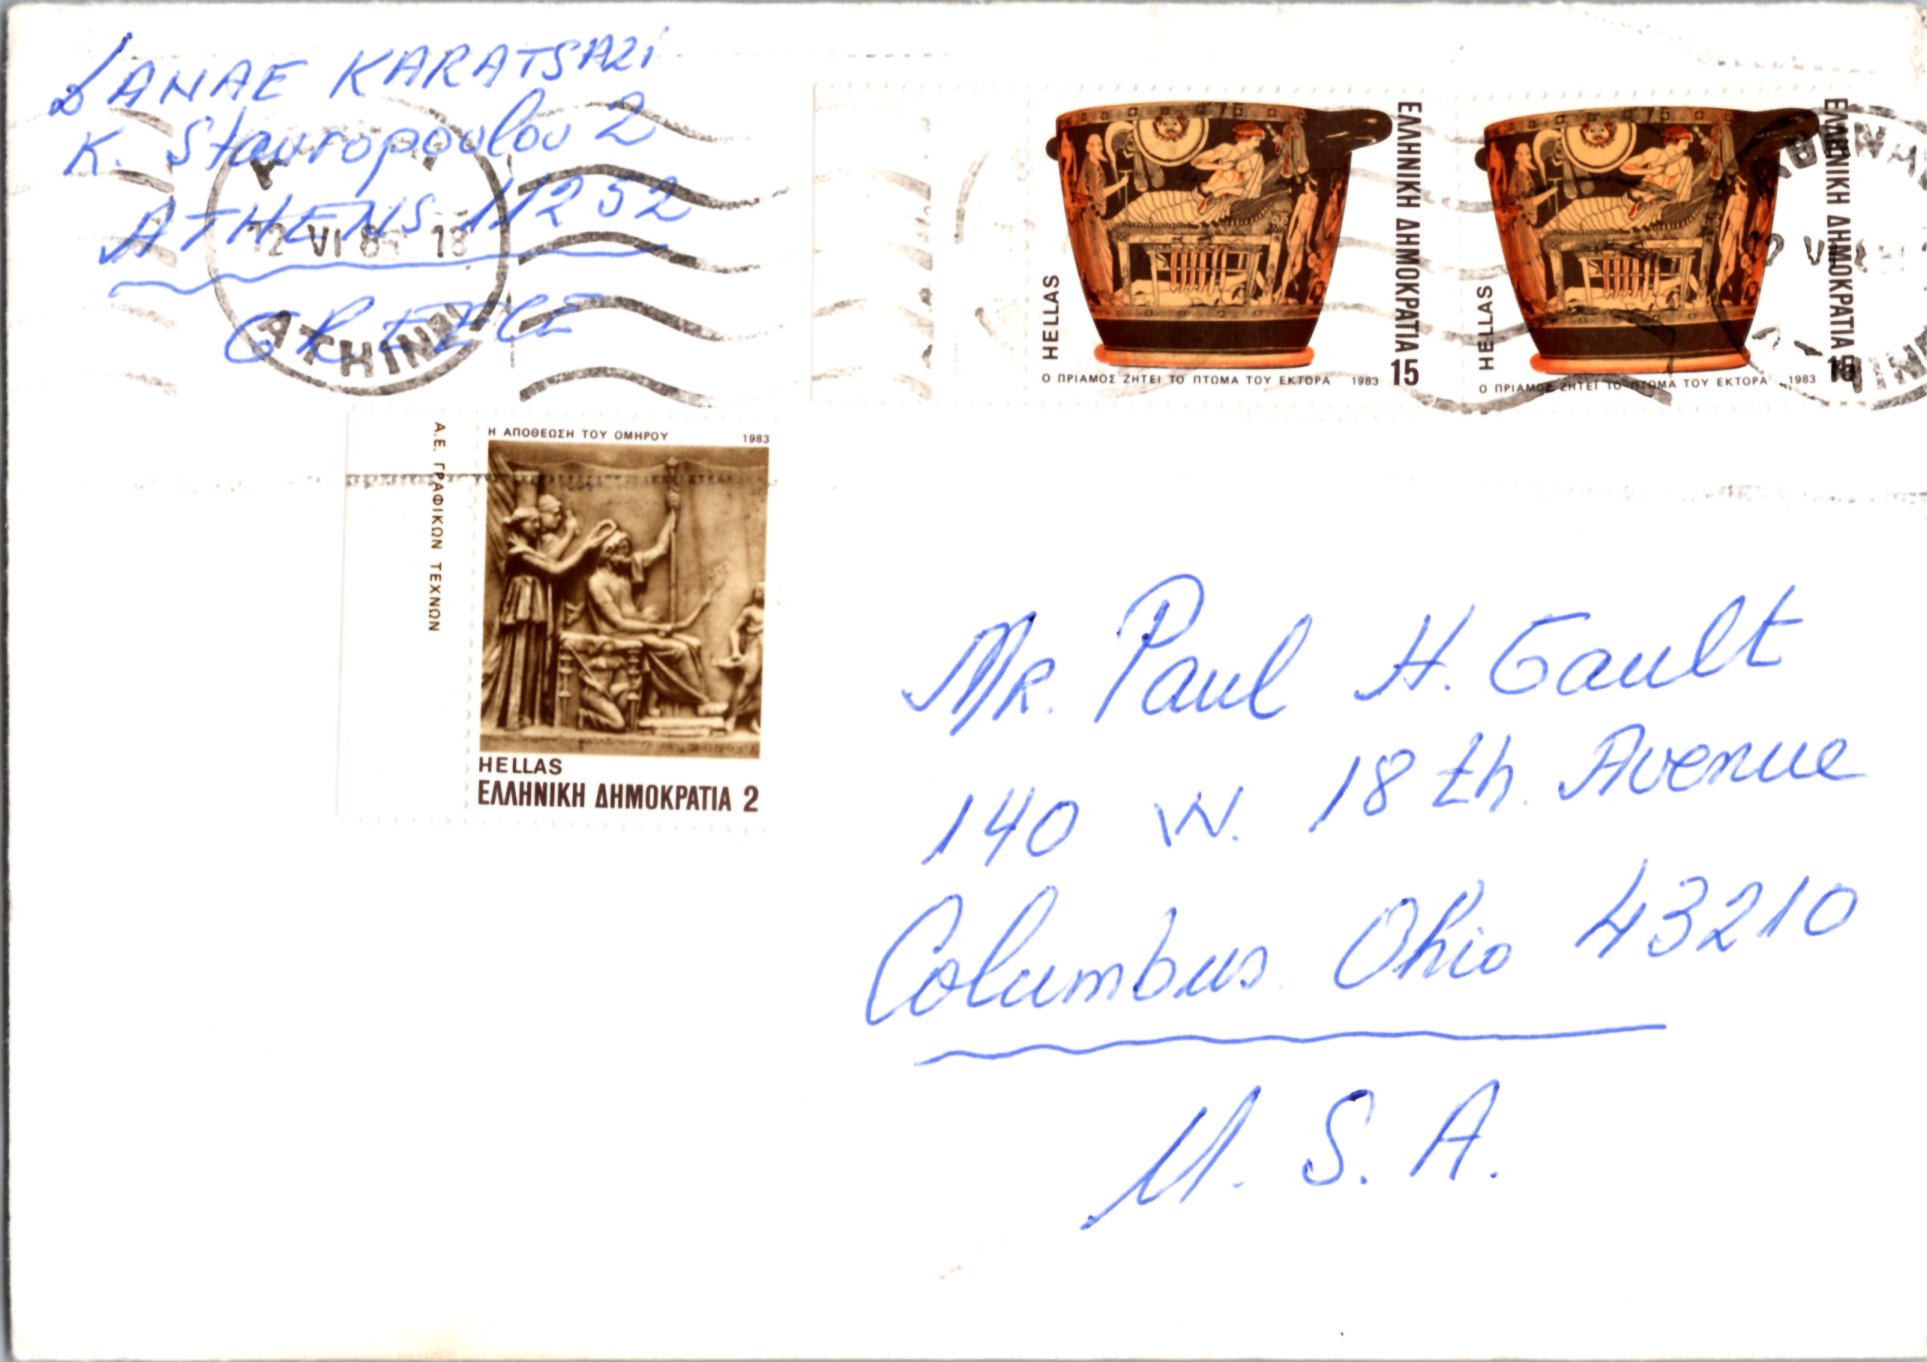 DANAE KARATSAZI
K. Stavropoulou 2
ATHENS 11252
GREECE
12 VI 85 18
ΑΘΗΝΑΙ
ATHINAI
HELLAS
ΕΛΛΗΝΙΚΗ ΔΗΜΟΚΡΑΤΙΑ 15
Ο ΠΡΙΑΜΟΣ ΖΗΤΕΙ ΤΟ ΠΤΩΜΑ ΤΟΥ ΕΚΤΟΡΑ 1983
HELLAS
ΕΛΛΗΝΙΚΗ ΔΗΜΟΚΡΑΤΙΑ 15
Ο ΠΡΙΑΜΟΣ ΖΗΤΕΙ ΤΟ ΠΤΩΜΑ ΤΟΥ ΕΚΤΟΡΑ 1983
Α.Ε. ΓΡΑΦΙΚΩΝ ΤΕΧΝΩΝ
Η ΑΠΟΘΕΩΣΗ ΤΟΥ ΟΜΗΡΟΥ 1983
HELLAS
ΕΛΛΗΝΙΚΗ ΔΗΜΟΚΡΑΤΙΑ 2
MR. Paul H. Gault
140 W. 18 th. Avenue
Columbus Ohio 43210
U. S. A.